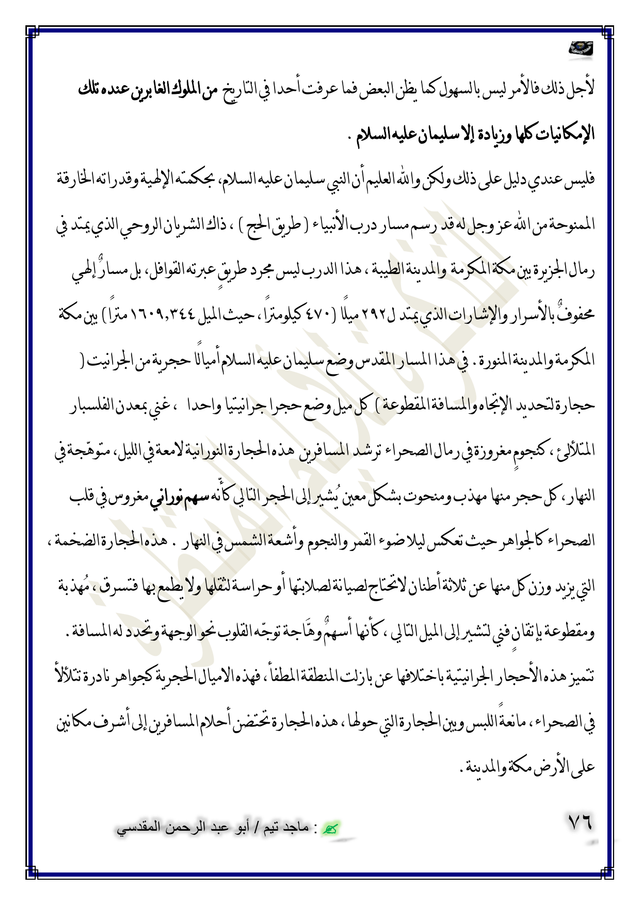 لأجل ذلك فالأمر ليس بالسهول كما يظن البعض فما عرفت أحدا في التاريخ من الملوك الغابرين عنده تلك
الإمكانيات كلها وزيادة إلا سليمان عليه السلام .
فليس عندي دليل على ذلك ولكن والله العليم أن النبي سليمان عليه السلام، بحكمته الإلهية وقدراته الخارقة
الممنوحة من الله عز وجل له قد رسم مسار درب الأنبياء ( طريق الحج ) ، ذاك الشريان الروحي الذي يمتد في
رمال الجزيرة بين مكة المكرمة والمدينة الطيبة ، هذا الدرب ليس مجرد طريقٍ عبرته القوافل، بل مسارٌ إلهي
محفوفٌ بالأسرار والإشارات الذي يمتد ل٢٩٢ ميلًا (٤٧٠ كيلومترًا ، حيث الميل ١٦٠٩,٣٤٤ مترًا) بين مكة
المكرمة والمدينة المنورة . في هذا المسار المقدس وضع سليمان عليه السلام أميالًا حجرية من الجرانيت (
حجارة لتحديد الإتجاه والمسافة المقطوعة ) كل ميل وضع حجرا جرانيتيا واحدا ، غني بمعدن الفلسبار
المتلألئ ، كنجومٍ مغروزة في رمال الصحراء ترشد المسافرين هذه الحجارة النورانية لامعة في الليل، متوهّجة في
النهار، كل حجر منها مهذب ومنحوت بشكل معين يُشير إلى الحجر التالي كأنه سهم نوراني مغروس في قلب
الصحراء كالجواهر حيث تعكس ليلا ضوء القمر والنجوم وأشعة الشمس في النهار . هذه الحجارة الضخمة ،
التي يزيد وزن كل منها عن ثلاثة أطنان لا تحتاج لصيانة لصلابتها أو حراسة لثقلها ولا يطمع بها فتسرق ، مُهذبة
ومقطوعة بإتقانٍ فني لتشير إلى الميل التالي ، كأنها أسهمٌ وهّاجة توجّه القلوب نحو الوجهة وتحدد له المسافة .
تتميز هذه الأحجار الجرانيتية باختلافها عن بازلت المنطقة المطفأ ، فهذه الاميال الحجرية كجواهر نادرة تتلألأ
في الصحراء ، مانعةً اللبس وبين الحجارة التي حولها ، هذه الحجارة تحتضن أحلام المسافرين إلى أشرف مكانين
على الأرض مكة والمدينة .
٧٦
: ماجد تيم / أبو عبد الرحمن المقدسي